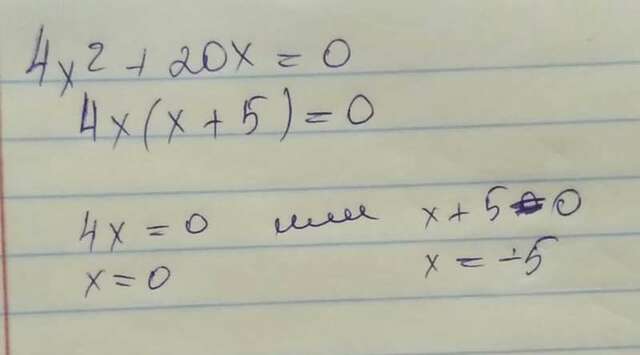 4x² + 20x = 0
4x(x + 5) = 0
4x = 0 или x + 5 = 0
x = 0 x = -5